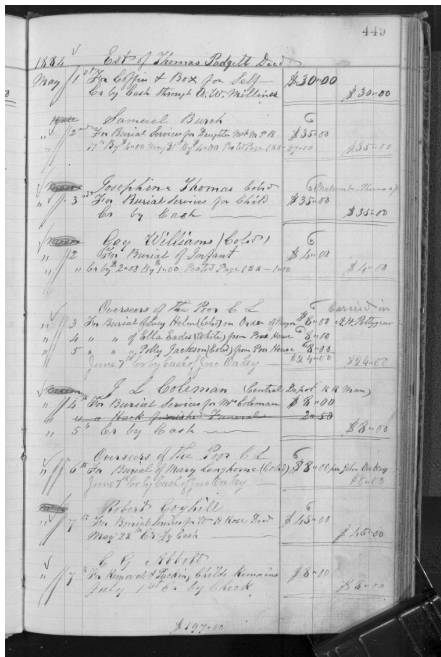 449
1884 Est of Thomas Padgett Decd
May 1st For Coffin & Box for Self $30-00
Cr by Cash through $30-00
Samuel Burch
2nd For Burial Services for Daughter $35-00
$35-00
Josephine Thomas Cold
3rd For Burial Services for Child $35-00
Cr by Cash $35-00
Guy Williams (Cold)
2 For Burial of Infant $4-00
Cr by 2-00 By 1-00 Posted Page 188 - 1-00 $4-00
Overseers of the Poor C L Carried in
3 For Burial of Lucy Helm (Cold) on Order of Mayor $8-00
4 " " of Ella Eades (White) from Poor House 8-00
5 " " Polly Jackson (Cold) from Poor House 8-00
June Cr by Cash of $24-00
J L Coleman (Central Depot R R Man)
4th For Burial Services for Mrs Coleman $8-00
a Hack furnished Funeral 2-50
5th Cr by Cash $8-00
Overseers of the Poor C L
6th For Burial of Mary Langhorne (Cold) $8-00 per John
June Cr by Cash of $8-00
Robert Coghill
7th For Burial Services for Wm H Rose Decd $45-00
May 28th Cr By Cash $45-00
C G Abbott
7 For Removal & Packing Childs Remains $8-00
July 1st Cr by Check $8-00
$197-00